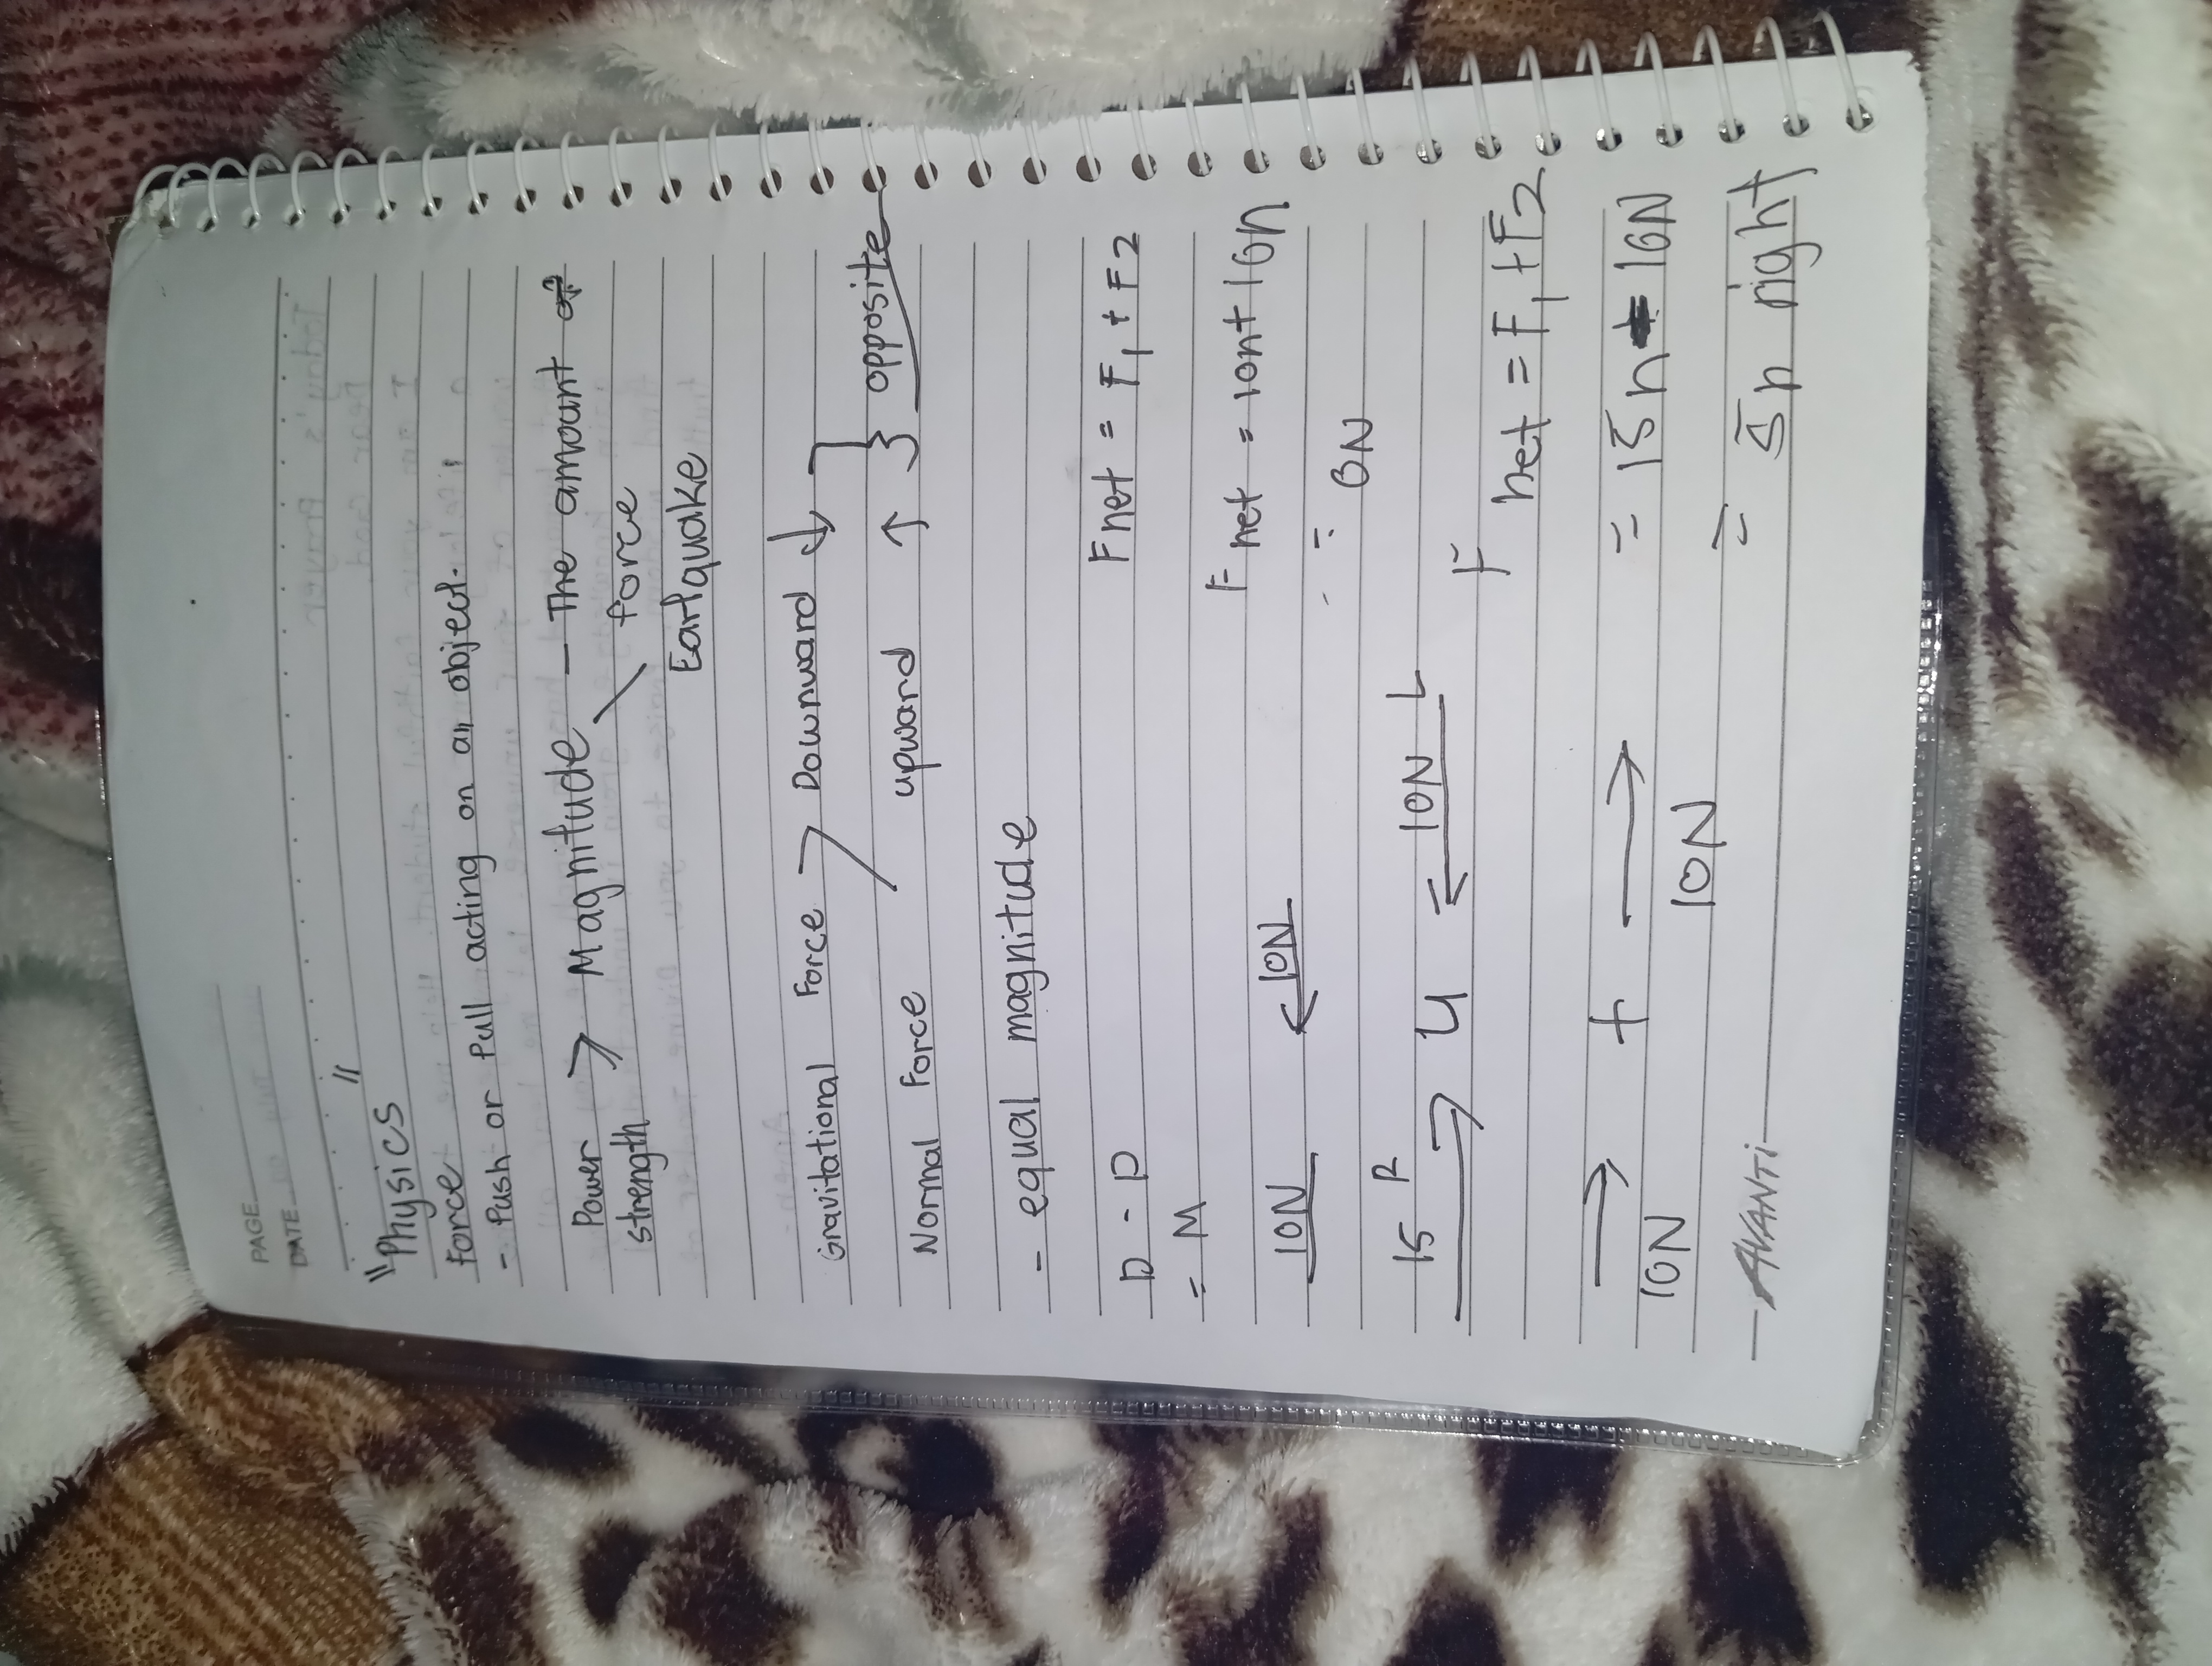 PAGE
DATE
"Physics"
Force
- Push or Pull acting on an object.
Power > Magnitude - The amount of
strength force
Eartquake
Gravitational Force > Downward ↓
} opposite
Normal Force upward ↑
- equal magnitude
D - D
= M
10N ← 10N
15 R → U ← 10N L
→ + →
10N 10N
AVANTi
Fnet = F1 + F2
F net = 10n + 10n
- = 0N
F net = F1 + F2
= 15n - 10N
= 5n right